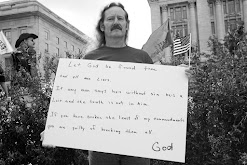 Let God be found true
and all men liars
If any man says he's without sin he's a
liar and the truth is not in him
If you have broken the least of my commandments
you are guilty of breaking them all
God